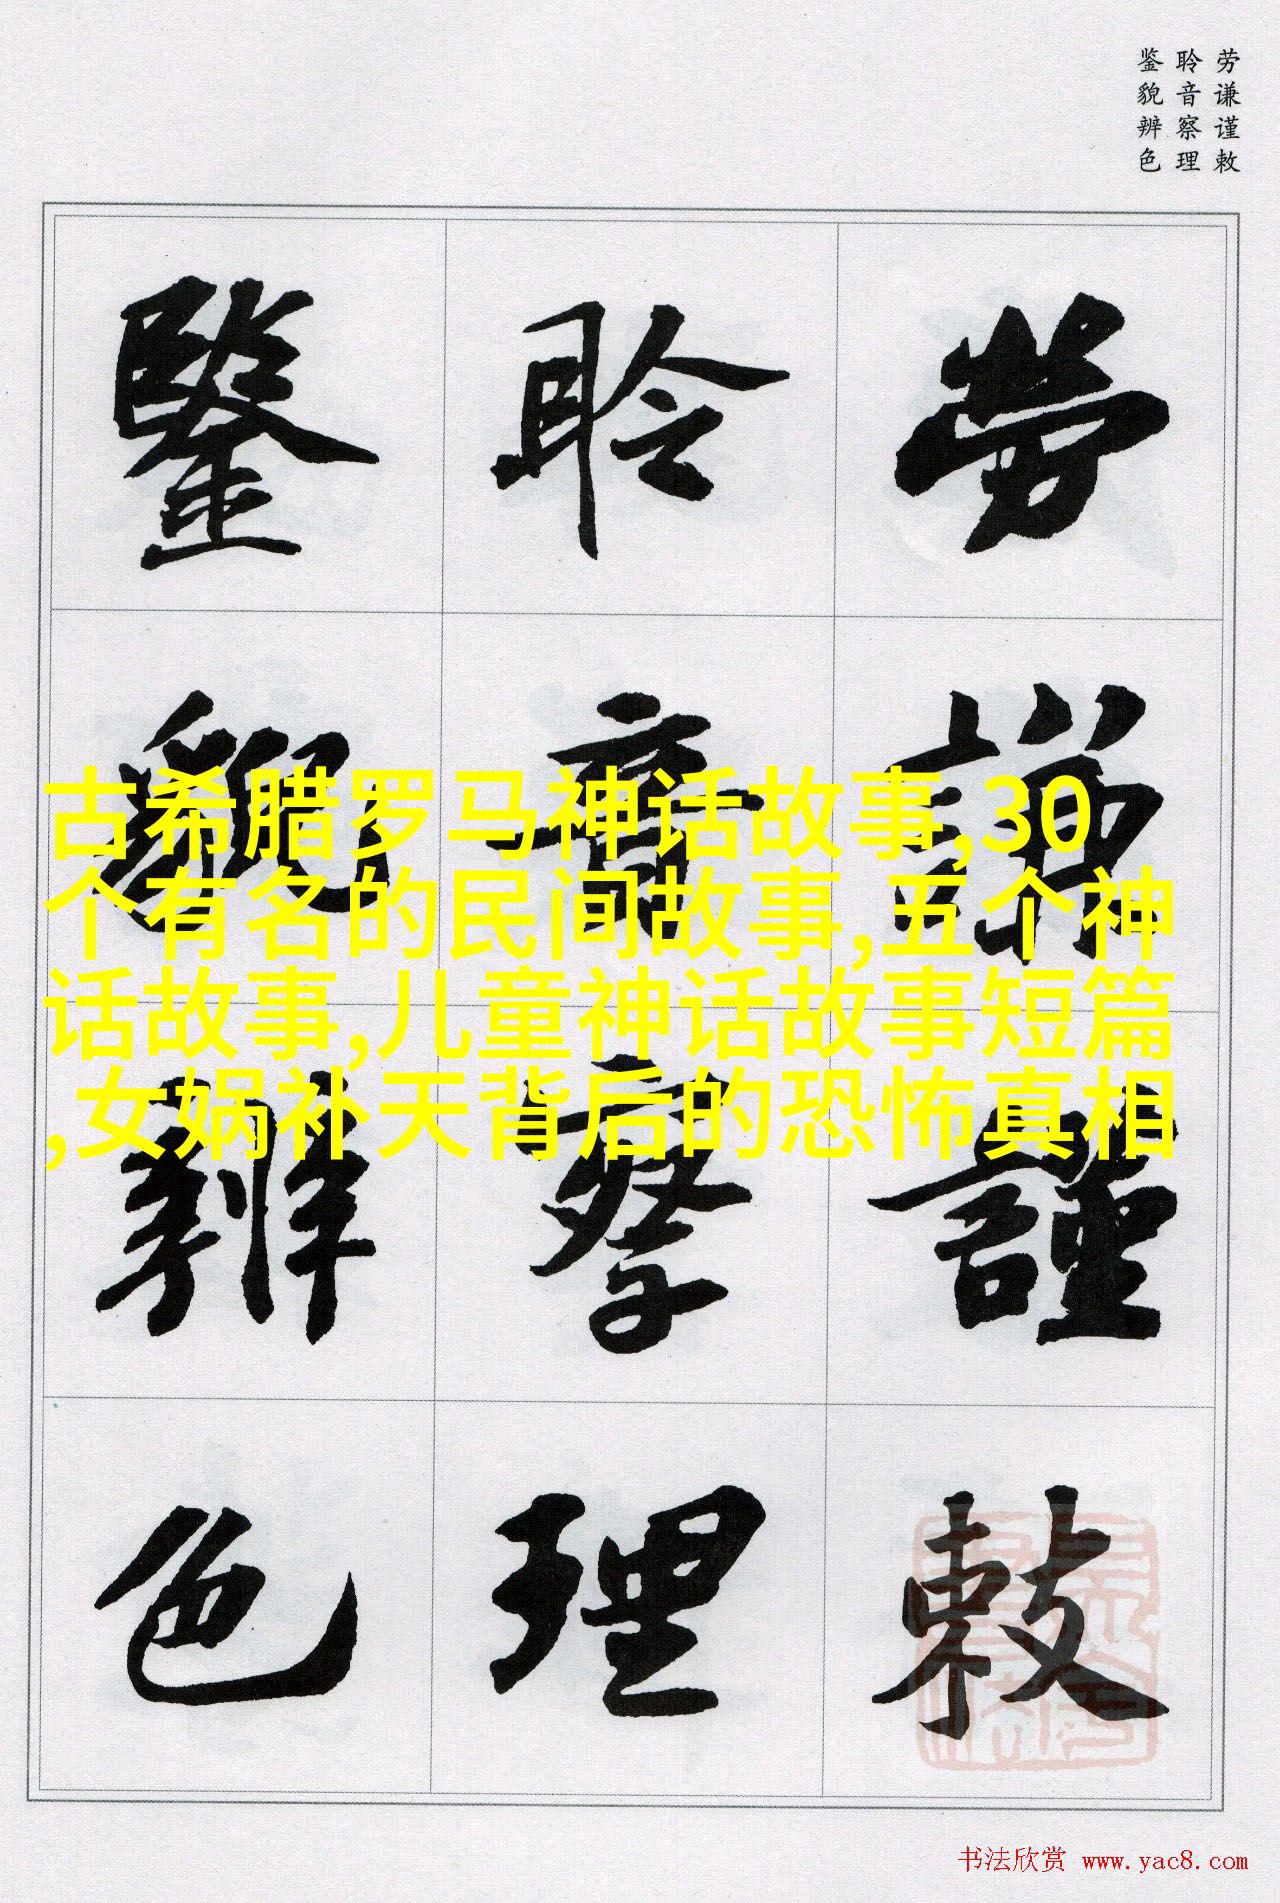 劳谦谨敕
聆音察理
鉴貌辨色
勞謙謹敕
聆音察理
鑒貌辨色
古希腊罗马神话故事,30
个有名的民间故事,五个神
话故事,儿童神话故事短篇
,女娲补天背后的恐怖真相
书法欣赏 www.yac8.com